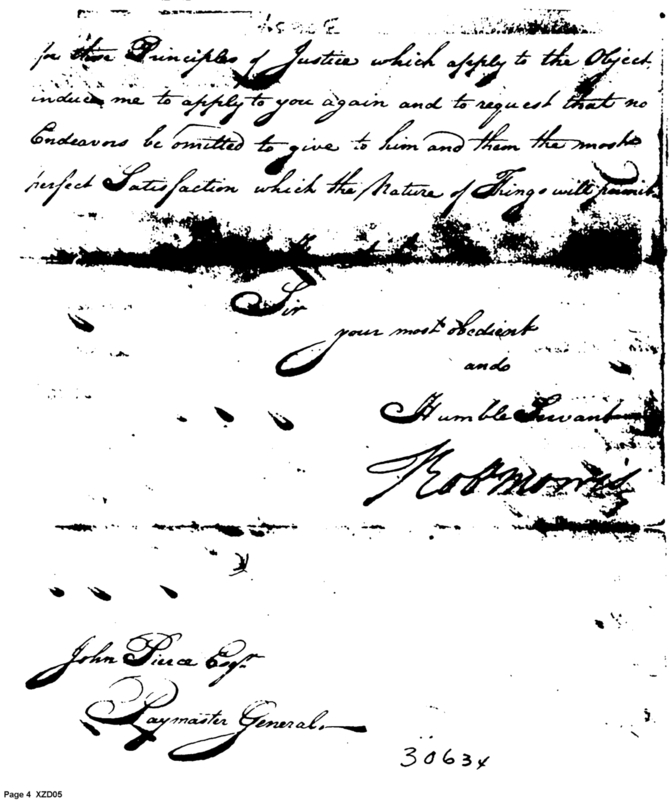 for those Principles of Justice which apply to the Object
induces me to apply to you again and to request that no
Endeavors be omitted to give to him and them the most
perfect Satisfaction which the Nature of Things will permit.
Sir
your most obedient
and
Humble Servant
Robt Morris
John Pierce Esqr.
Paymaster General.
30634
Page 4 XZD05